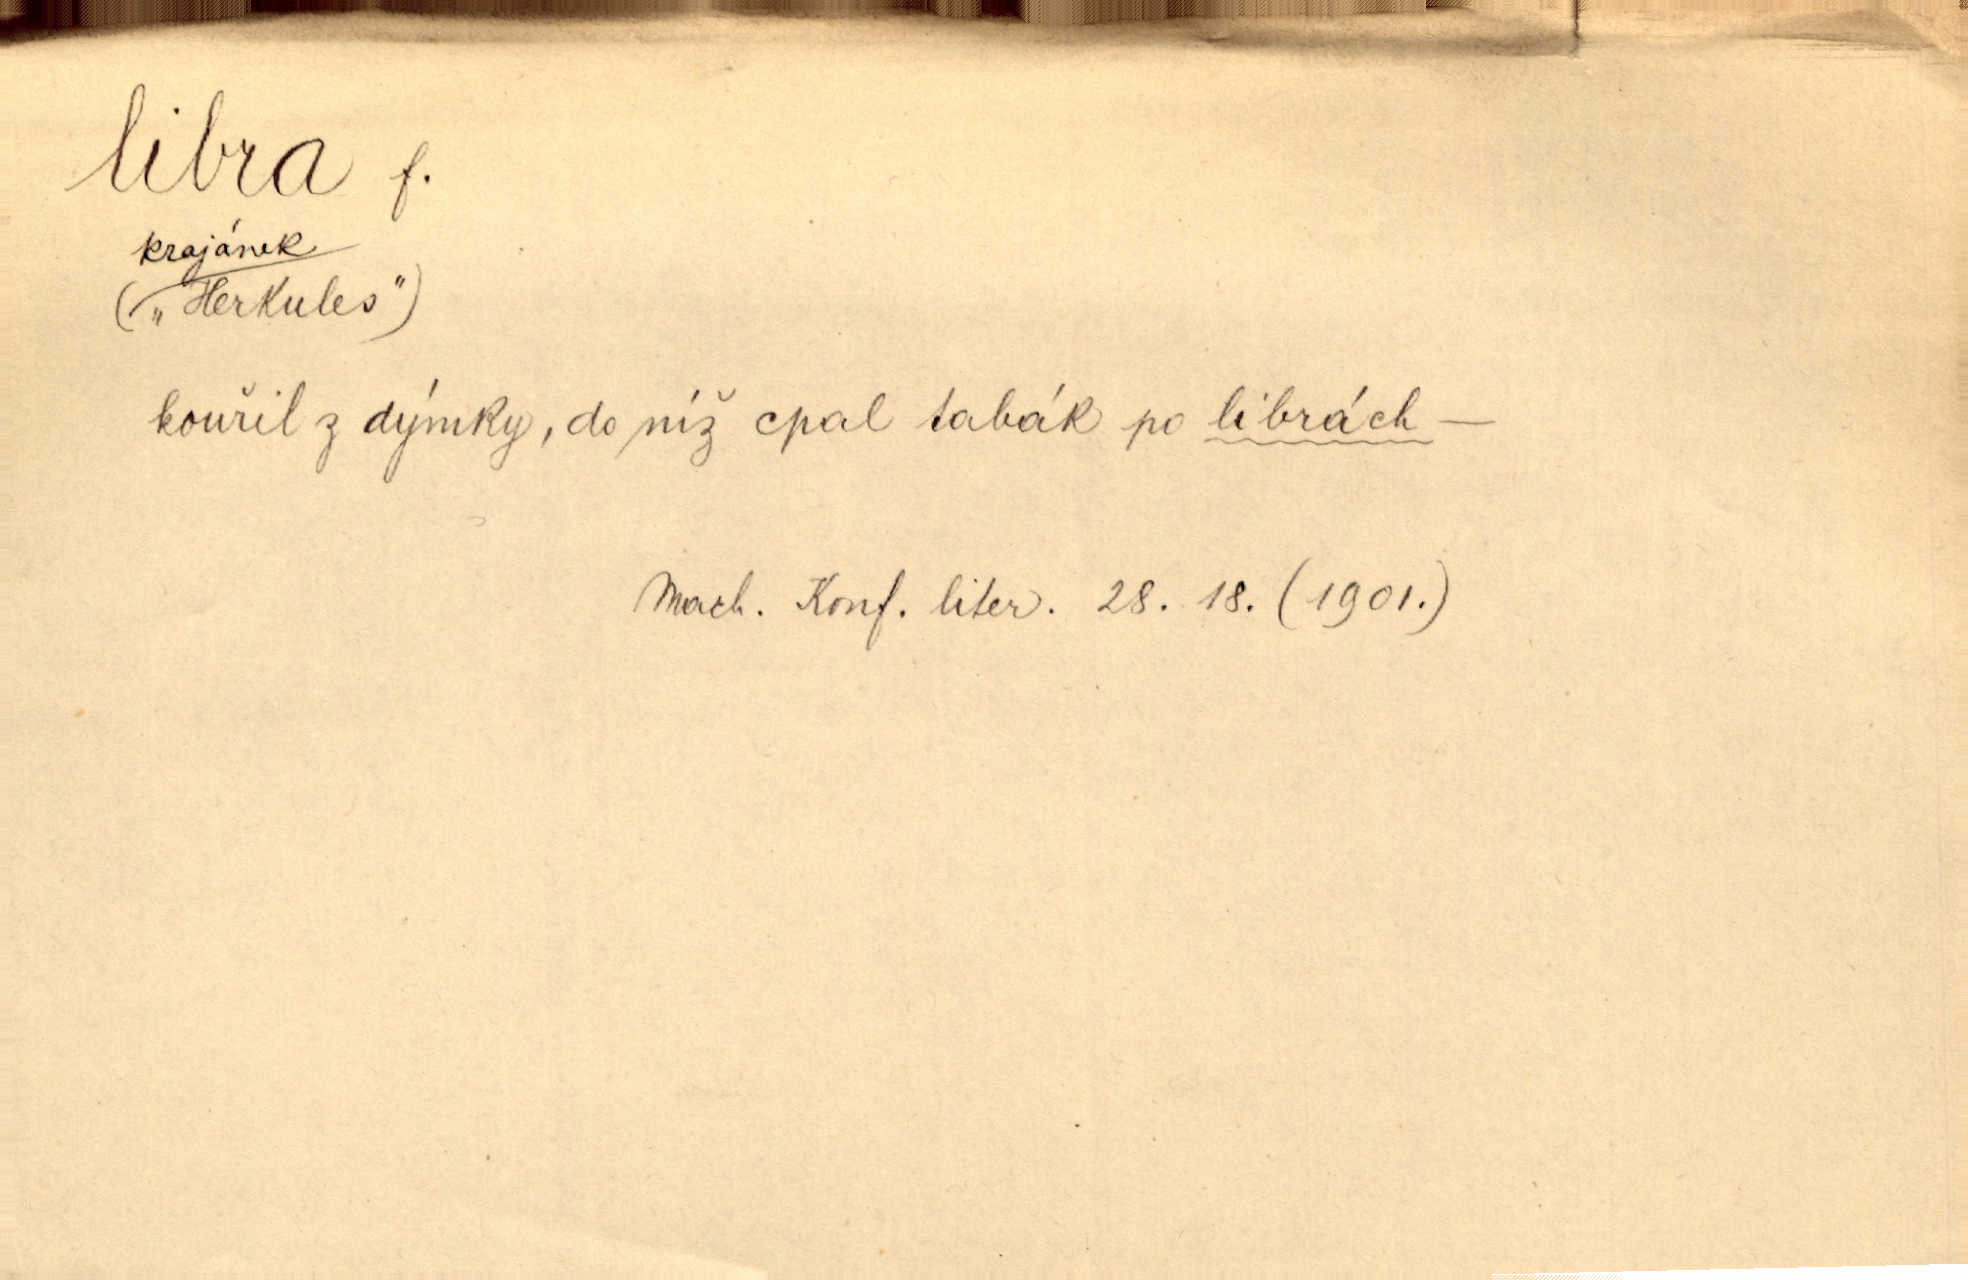 libra f.
krajánek
(„Herkules")
kouřil z dýmky, do níž cpal tabák po librách —
Mach. Konf. liter. 28. 18. (1901.)